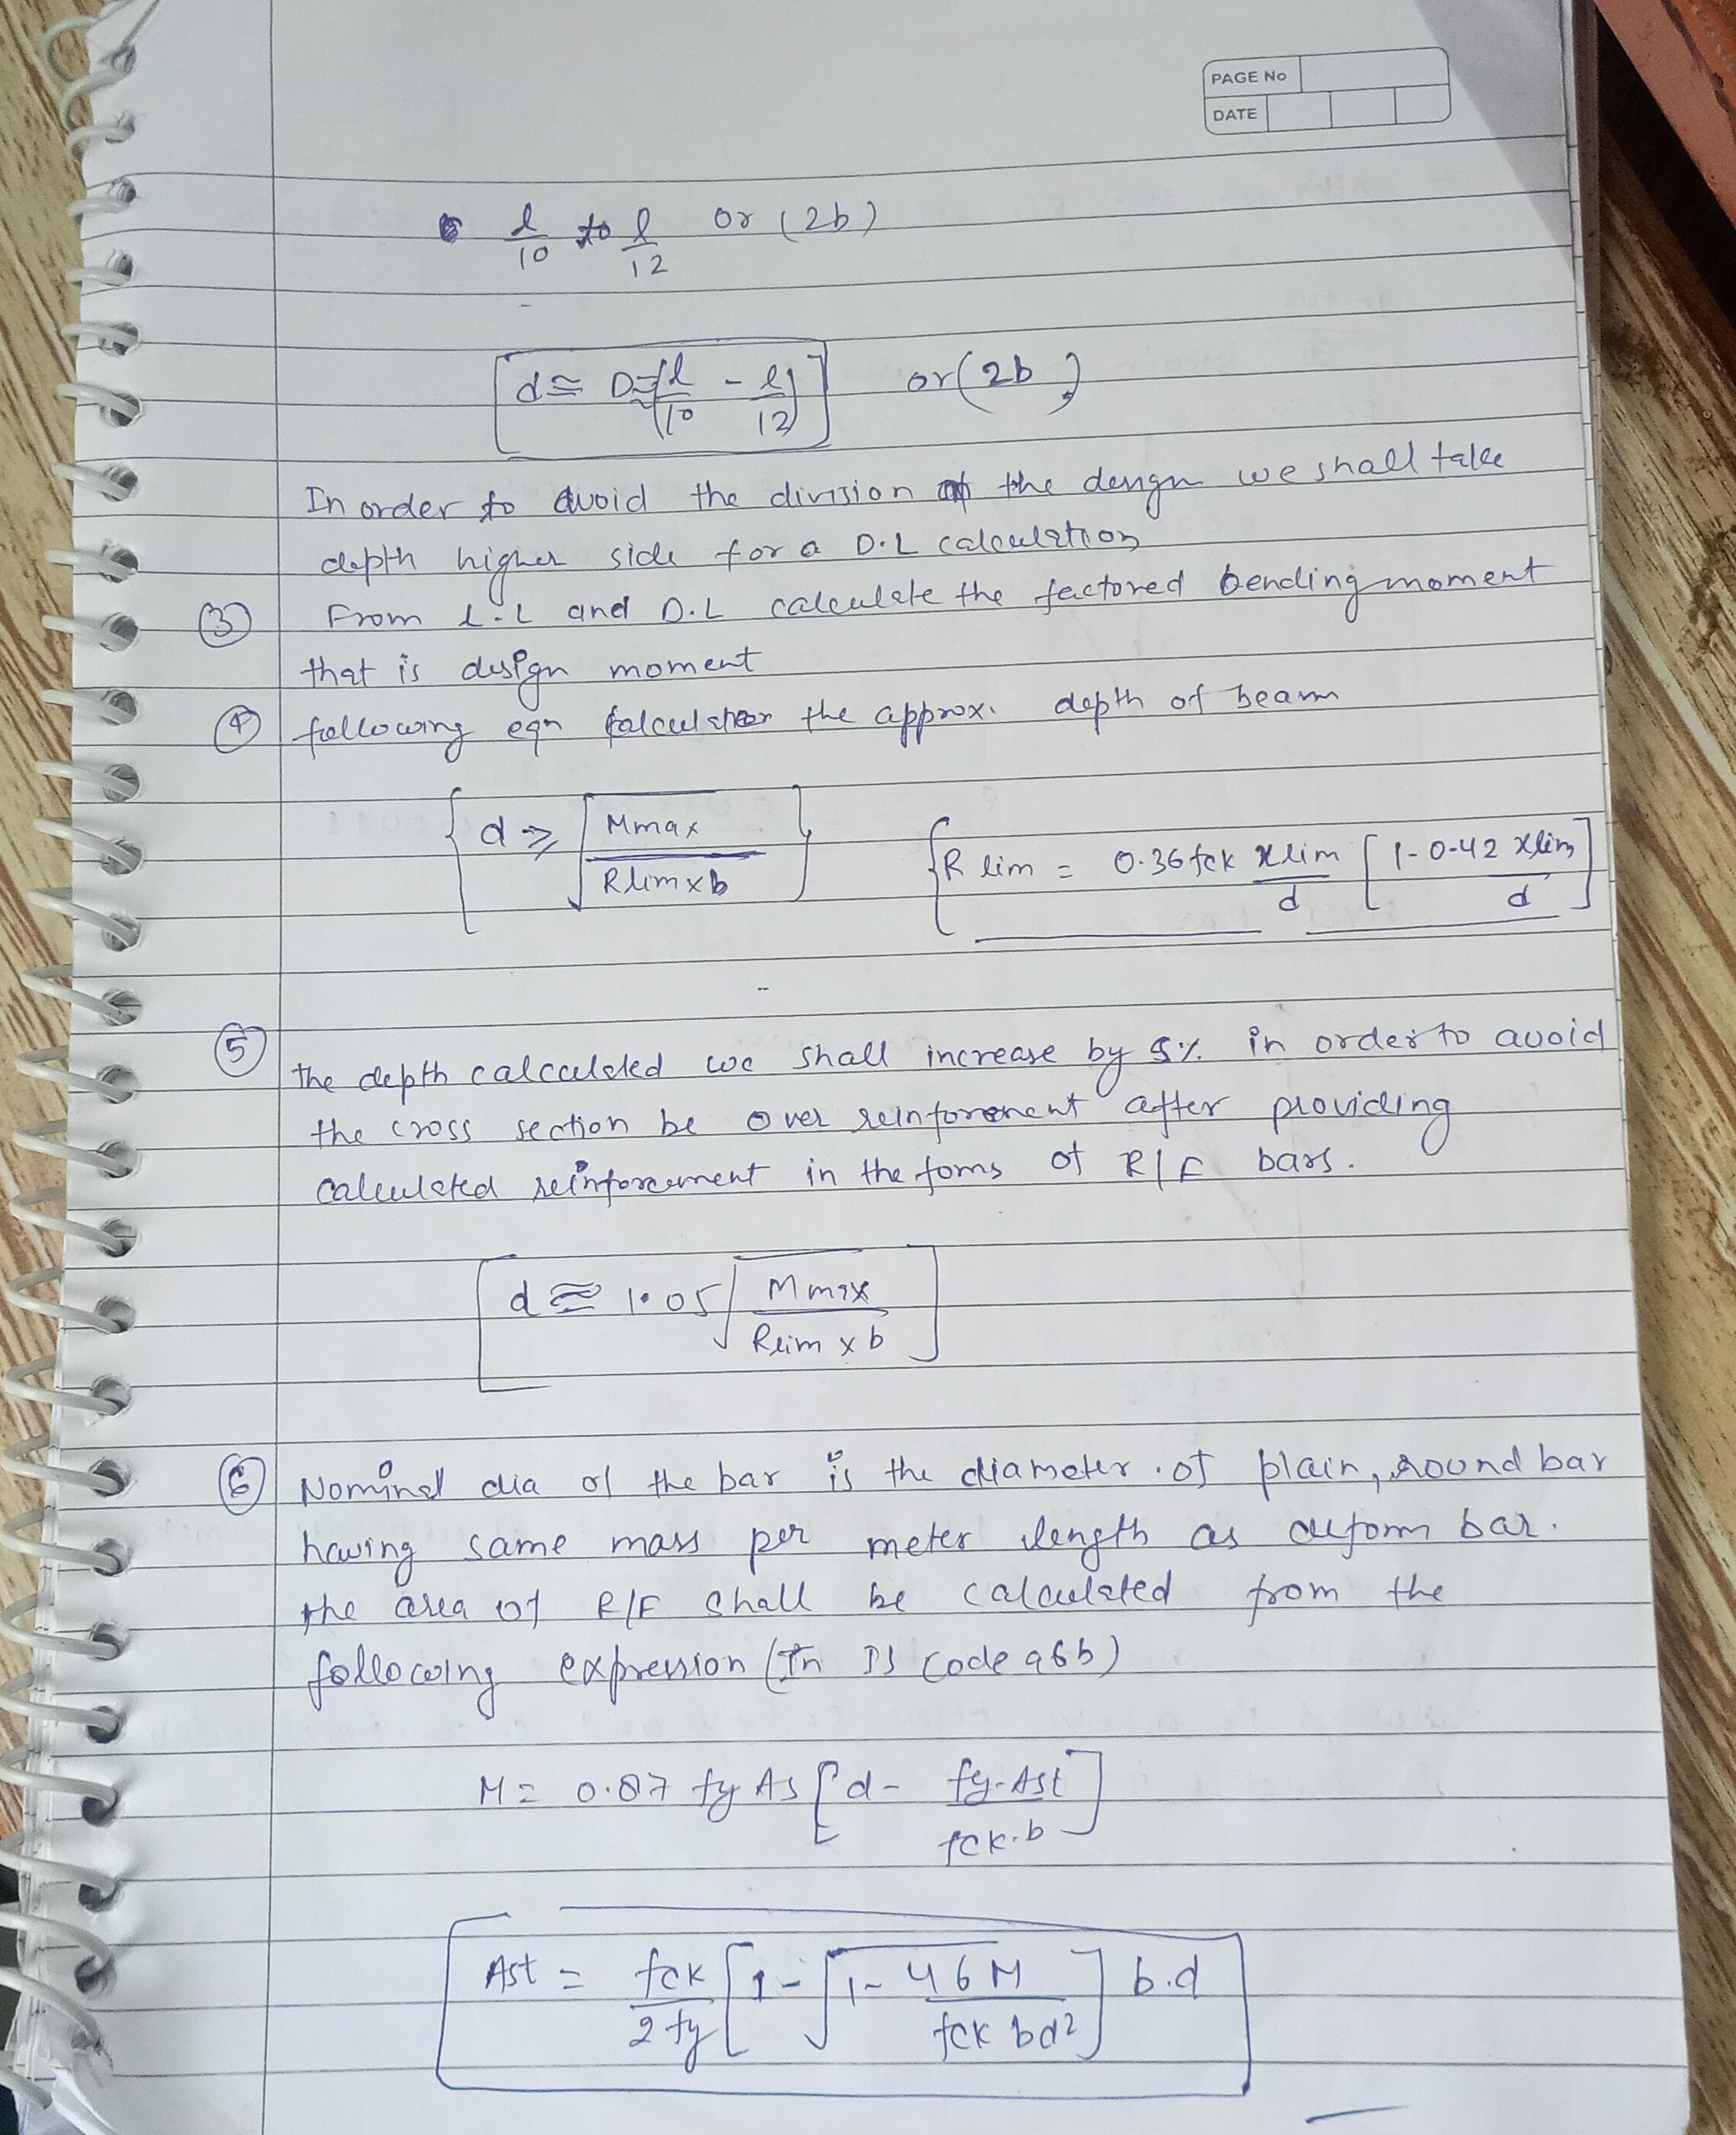 PAGE No
DATE
l/10 to l/12 or (2b)
[d ≅ D = (l/10 - l/12)] or (2b)
In order to avoid the division of the design we shall take
depth higher side for a D.L calculation
③ From L.L and D.L calculate the factored bending moment
that is design moment
④ following eqn the approx. depth of beam
{d ≥ √(Mmax / Rlim x b)} {R lim = 0.36 fck xlim/d [1 - 0.42 xlim/d]
⑤ the depth calculated we shall increase by 5% in order to avoid
the cross section be over reinforement after providing
calculated reinforcement in the foms of R/F bars.
[d ≅ 1.05 √(Mmax / Rlim x b)]
⑥ Nominal dia of the bar is the diameter of plain, round bar
having same mass per meter length as deform bar.
the area of R/F shall be calculated from the
following expression (In IS code 456)
M = 0.87 fy As [d - fy.Ast / fck.b]
Ast = fck/2fy [1 - √(1 - 4 6 M / fck bd²)] b.d